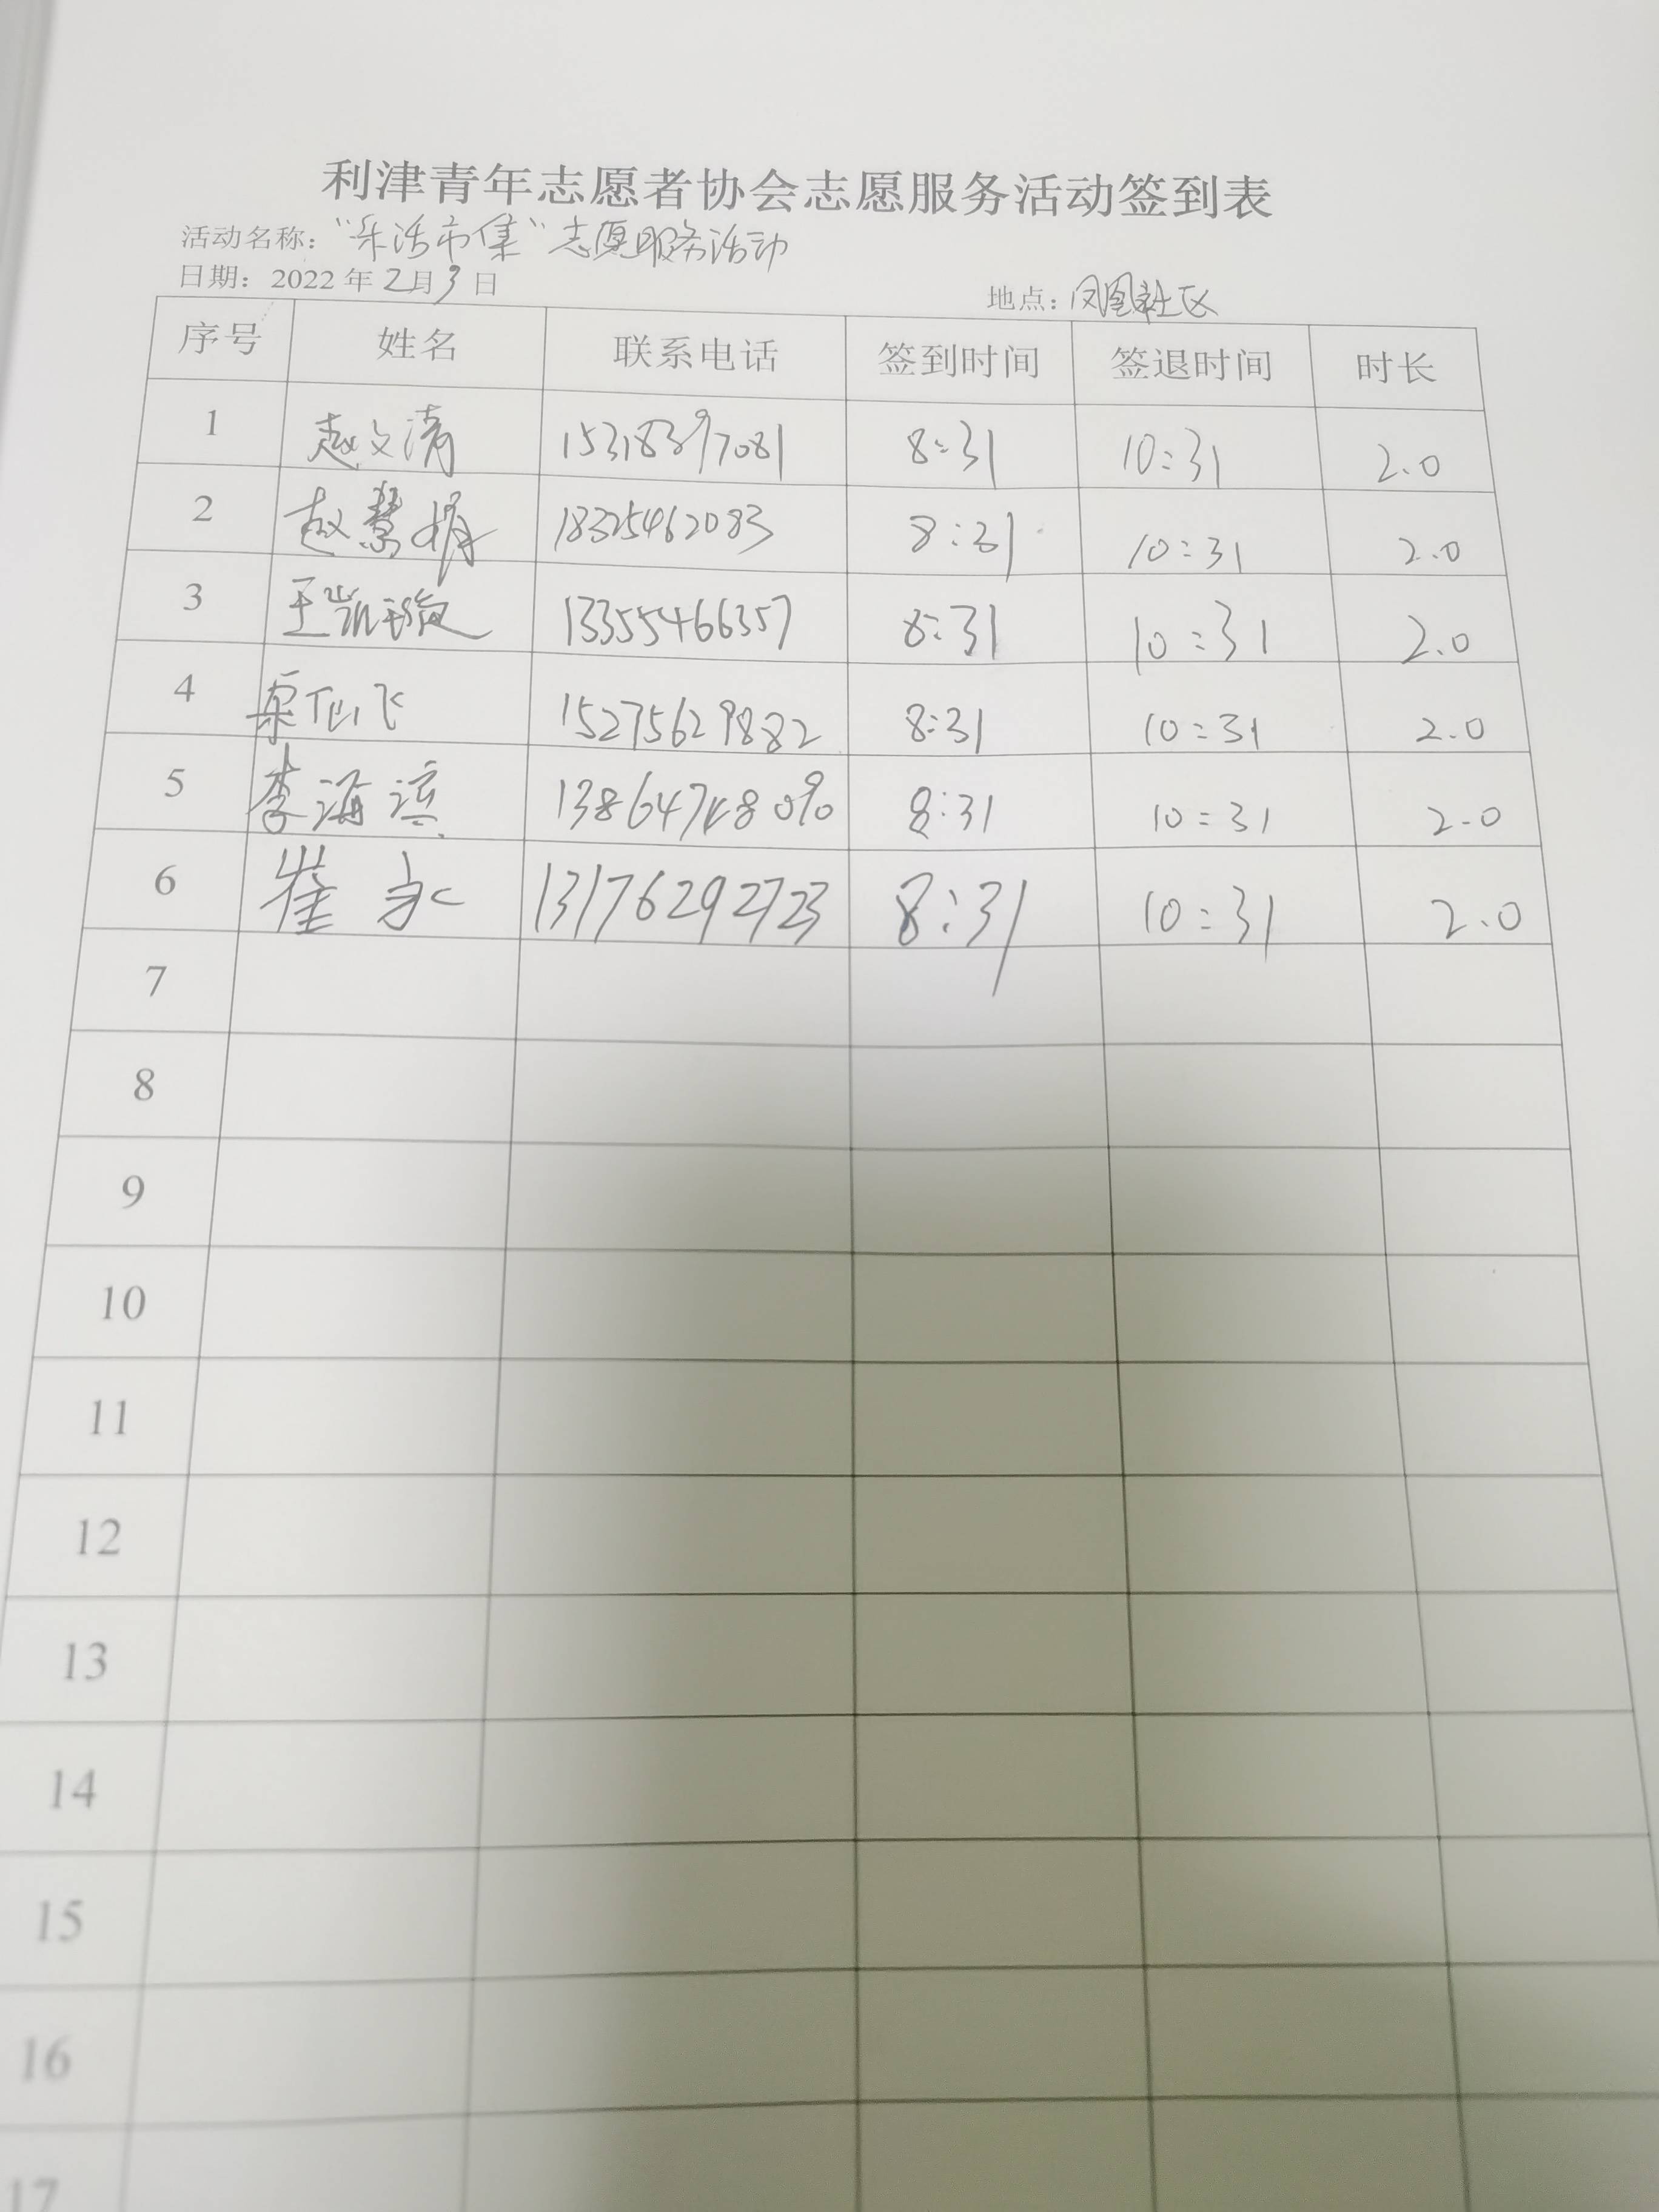 利津青年志愿者协会志愿服务活动签到表
活动名称：“乐活市集”志愿服务活动
日期：2022年2月3日 地点：凤凰社区
序号 姓名 联系电话 签到时间 签退时间 时长
1 赵文清 15318397081 8:31 10:31 2.0
2 赵慧娟 18325462083 8:31 10:31 2.0
3 王凯璇 13355466357 8:31 10:31 2.0
4 栗仙飞 15275629882 8:31 10:31 2.0
5 李海滨 8:31 10:31 2.0
6 崔永 13176292723 8:31 10:31 2.0
7
8
9
10
11
12
13
14
15
16
17